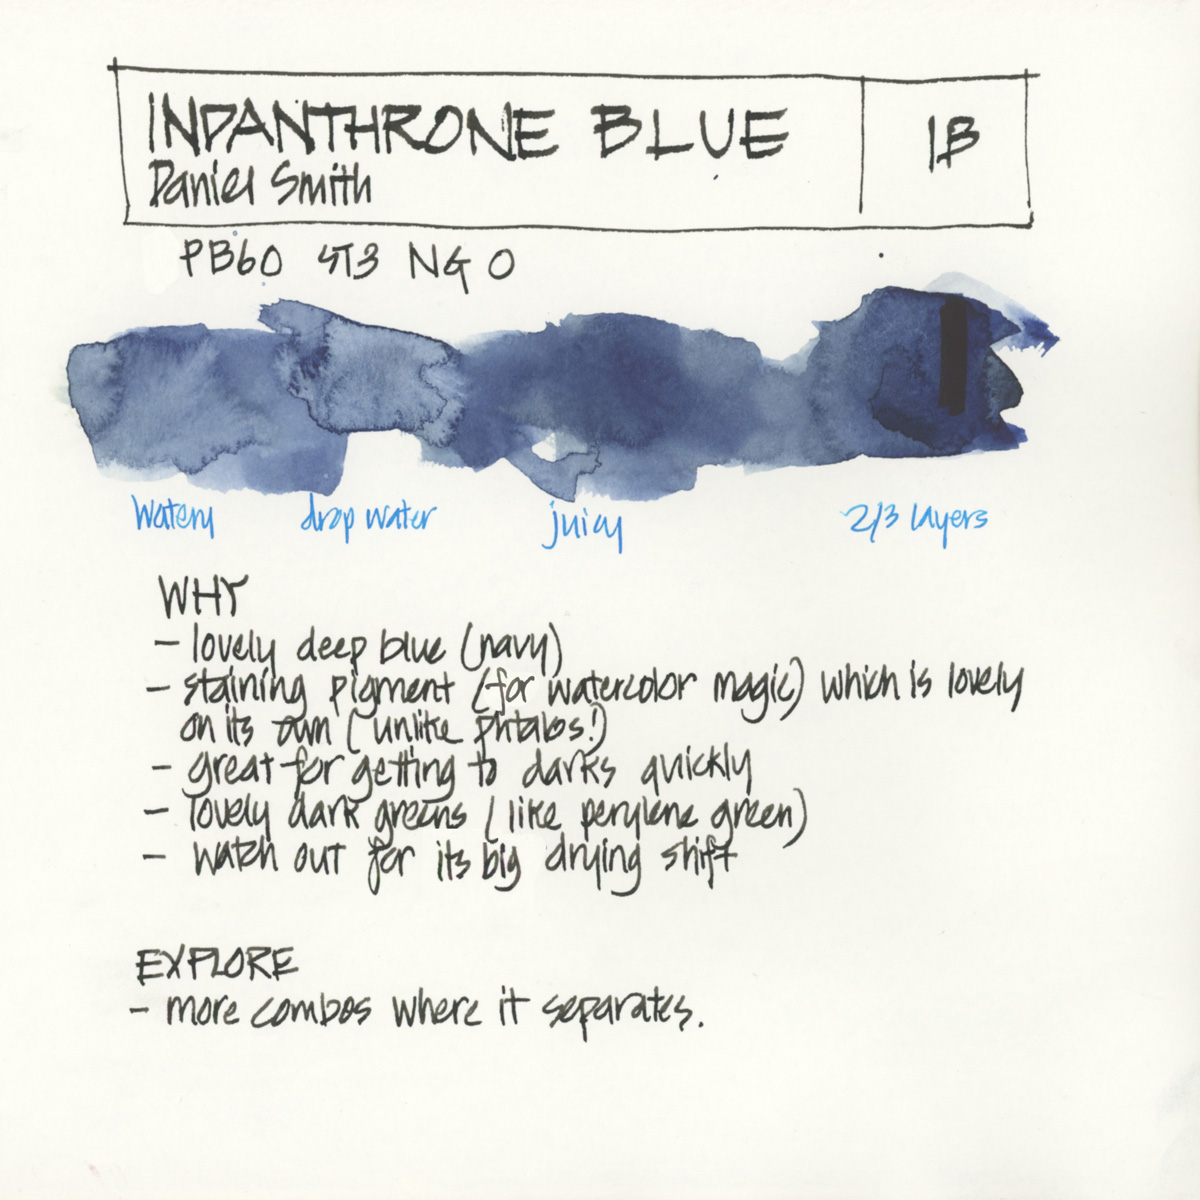 INDANTHRONE BLUE
IB
Daniel Smith
PB60 ST3 NG O
Watery drop water juicy 2/3 layers
WHY
- lovely deep blue (navy)
- staining pigment (for watercolor magic) which is lovely
on its own (unlike phtalos!)
- great for getting to darks quickly
- lovely dark greens (like perylene green)
- watch out for its big drying shift
EXPLORE
- more combos where it separates.